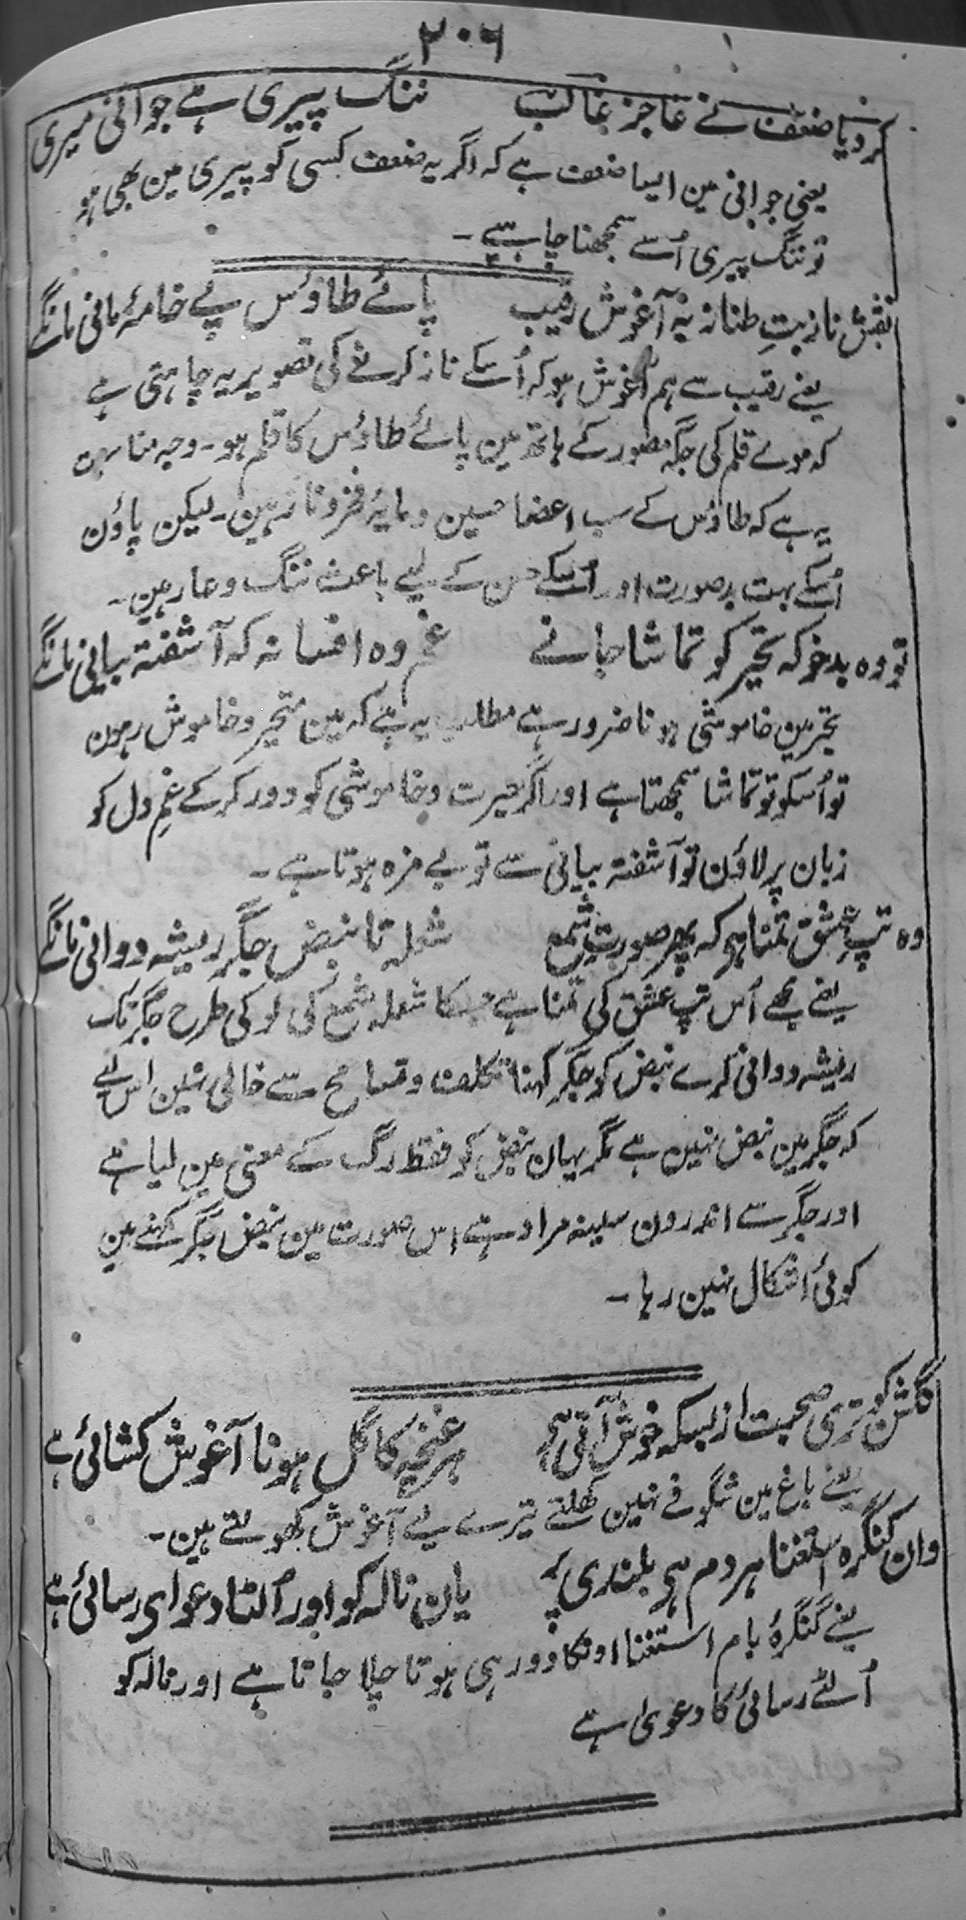 ۲۰۶
کر دیا ضعف نے عاجز غالب ننگ پیری ہے جوانی میری
یعنی جوانی مین ایسا ضعف ہے کہ اگر یہ ضعف کسی کو پیری مین بھی ہو
تو ننگ پیری اُسے سمجھنا چاہیے ۔
نقش ناز بتِ طناز بہ آغوش رقیب پائے طاؤس پے خامۂ مانی مانگے
یعنے رقیب سے ہم آغوش ہو کر اُسکے ناز کرنے کی تصویر یہ چاہتی ہے
کہ موے قلم کی جگہ مصور کے ہاتھ مین پائے طاؤس کا قلم ہو ۔ وجہ مناسبت
یہ ہے کہ طاؤس کے سب اعضا حسین و مایۂ فخر و ناز ہین ۔ لیکن پاؤن
اُسکے بہت بدصورت اور اُسکے حسن کے لیے باعث ننگ و عار ہین ۔
تو وہ بدخو کہ تحیر کو تماشا جانے غم وہ افسانہ کہ آشفتہ بیانی مانگے
تحیر مین خاموشی ہونا ضرور ہے مطلب یہ ہے کہ مین متحیر و خاموش رہون
تو اُسکو تو تماشا سمجھتا ہے اور اگر حیرت و خاموشی کو دور کر کے غم دل کو
زبان پر لاؤن تو آشفتہ بیانی سے تو بے مزہ ہوتا ہے ۔
وہ تپ عشق تمنا ہی کہ پھر صورت شمع شعلہ تا نبض جگر ریشہ دوانی مانگے
یعنے مجھے اُس تپ عشق کی تمنا ہے جسکا شعلہ شمع کی لو کی طرح جگر تک
ریشہ دوانی کرے نبض کو جگر کہنا تکلف و تسامح سے خالی نہین اس لیے
کہ جگر مین نبض نہین ہے مگر یہان نبض کو فقط رگ کے معنی مین لیا ہے
اور جگر سے اندرون سینہ مراد ہے اس صورت مین نبض جگر کہنے مین
کوئی اشکال نہین رہا ۔
گلشن کو تری صحبت از بسکہ خوش آئی ہی ہر غنچہ کا گل ہونا آغوش کشائی ہے
یعنے باغ مین شگوفے نہین کھلتے تیرے لیے آغوش کھولتے ہین ۔
وان کنگرہ استغنا ہر دم ہی بلندی پر یان نالہ کو اور اُلٹا دعوای رسائی ہے
یعنے کنگرۂ بام استغنا اونکا دور ہی ہوتا چلا جاتا ہے اور نالہ کو
اُلٹے رسائی کا دعویٰ ہے